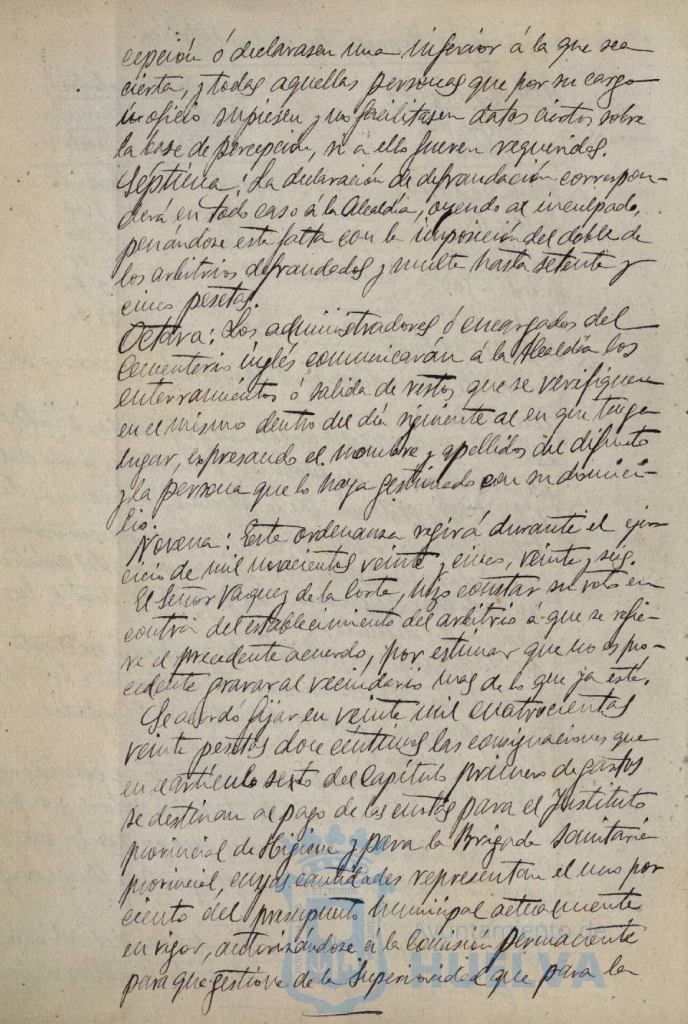 cepción ó declarasen una inferior á la que sea
cierta, y todas aquellas personas que por su cargo
ú oficio supiesen y no facilitasen datos ciertos sobre
la base de percepción, si a ello fueren requeridas.
Septima: La declaración de defraudación correspon-
derá en todo caso á la Alcaldía, oyendo al inculpado,
penándose esta falta con la imposición del doble de
los arbitrios defraudados y multa hasta setenta y
cinco pesetas.
Octava: Los administradores ó encargados del
Cementerio inglés comunicarán á la Alcaldía los
enterramientos ó salida de restos que se verifiquen
en el mismo dentro del día siguiente al en que tenga
lugar, expresando el nombre y apellidos del difunto
y la persona que lo haya gestionado con su domici-
lio.
Novena: Este ordenanza regirá durante el ejer-
cicio de mil novecientos veinte y cinco, veinte y seis.
El Señor Vazquez de la Corte, hizo constar su voto en
contra del establecimiento del arbitrio á que se refie-
re el precedente acuerdo, por estimar que no es pro-
cedente gravar al vecindario mas de lo que ya está.
Se acordó fijar en veinte mil cuatrocientas
veinte pesetas doce centimos las consignaciones que
en el artículo sexto del Capítulo primero de gastos
se destinan al pago de las cuotas para el Instituto
provincial de Higiene y para la Brigada Sanitaria
provincial, cuyas cantidades representan el uno por
ciento del presupuesto municipal actualmente
en vigor, autorizándose á la Comisión permanente
para que gestione de la Superioridad que para la
Ayuntamiento de
HUELVA